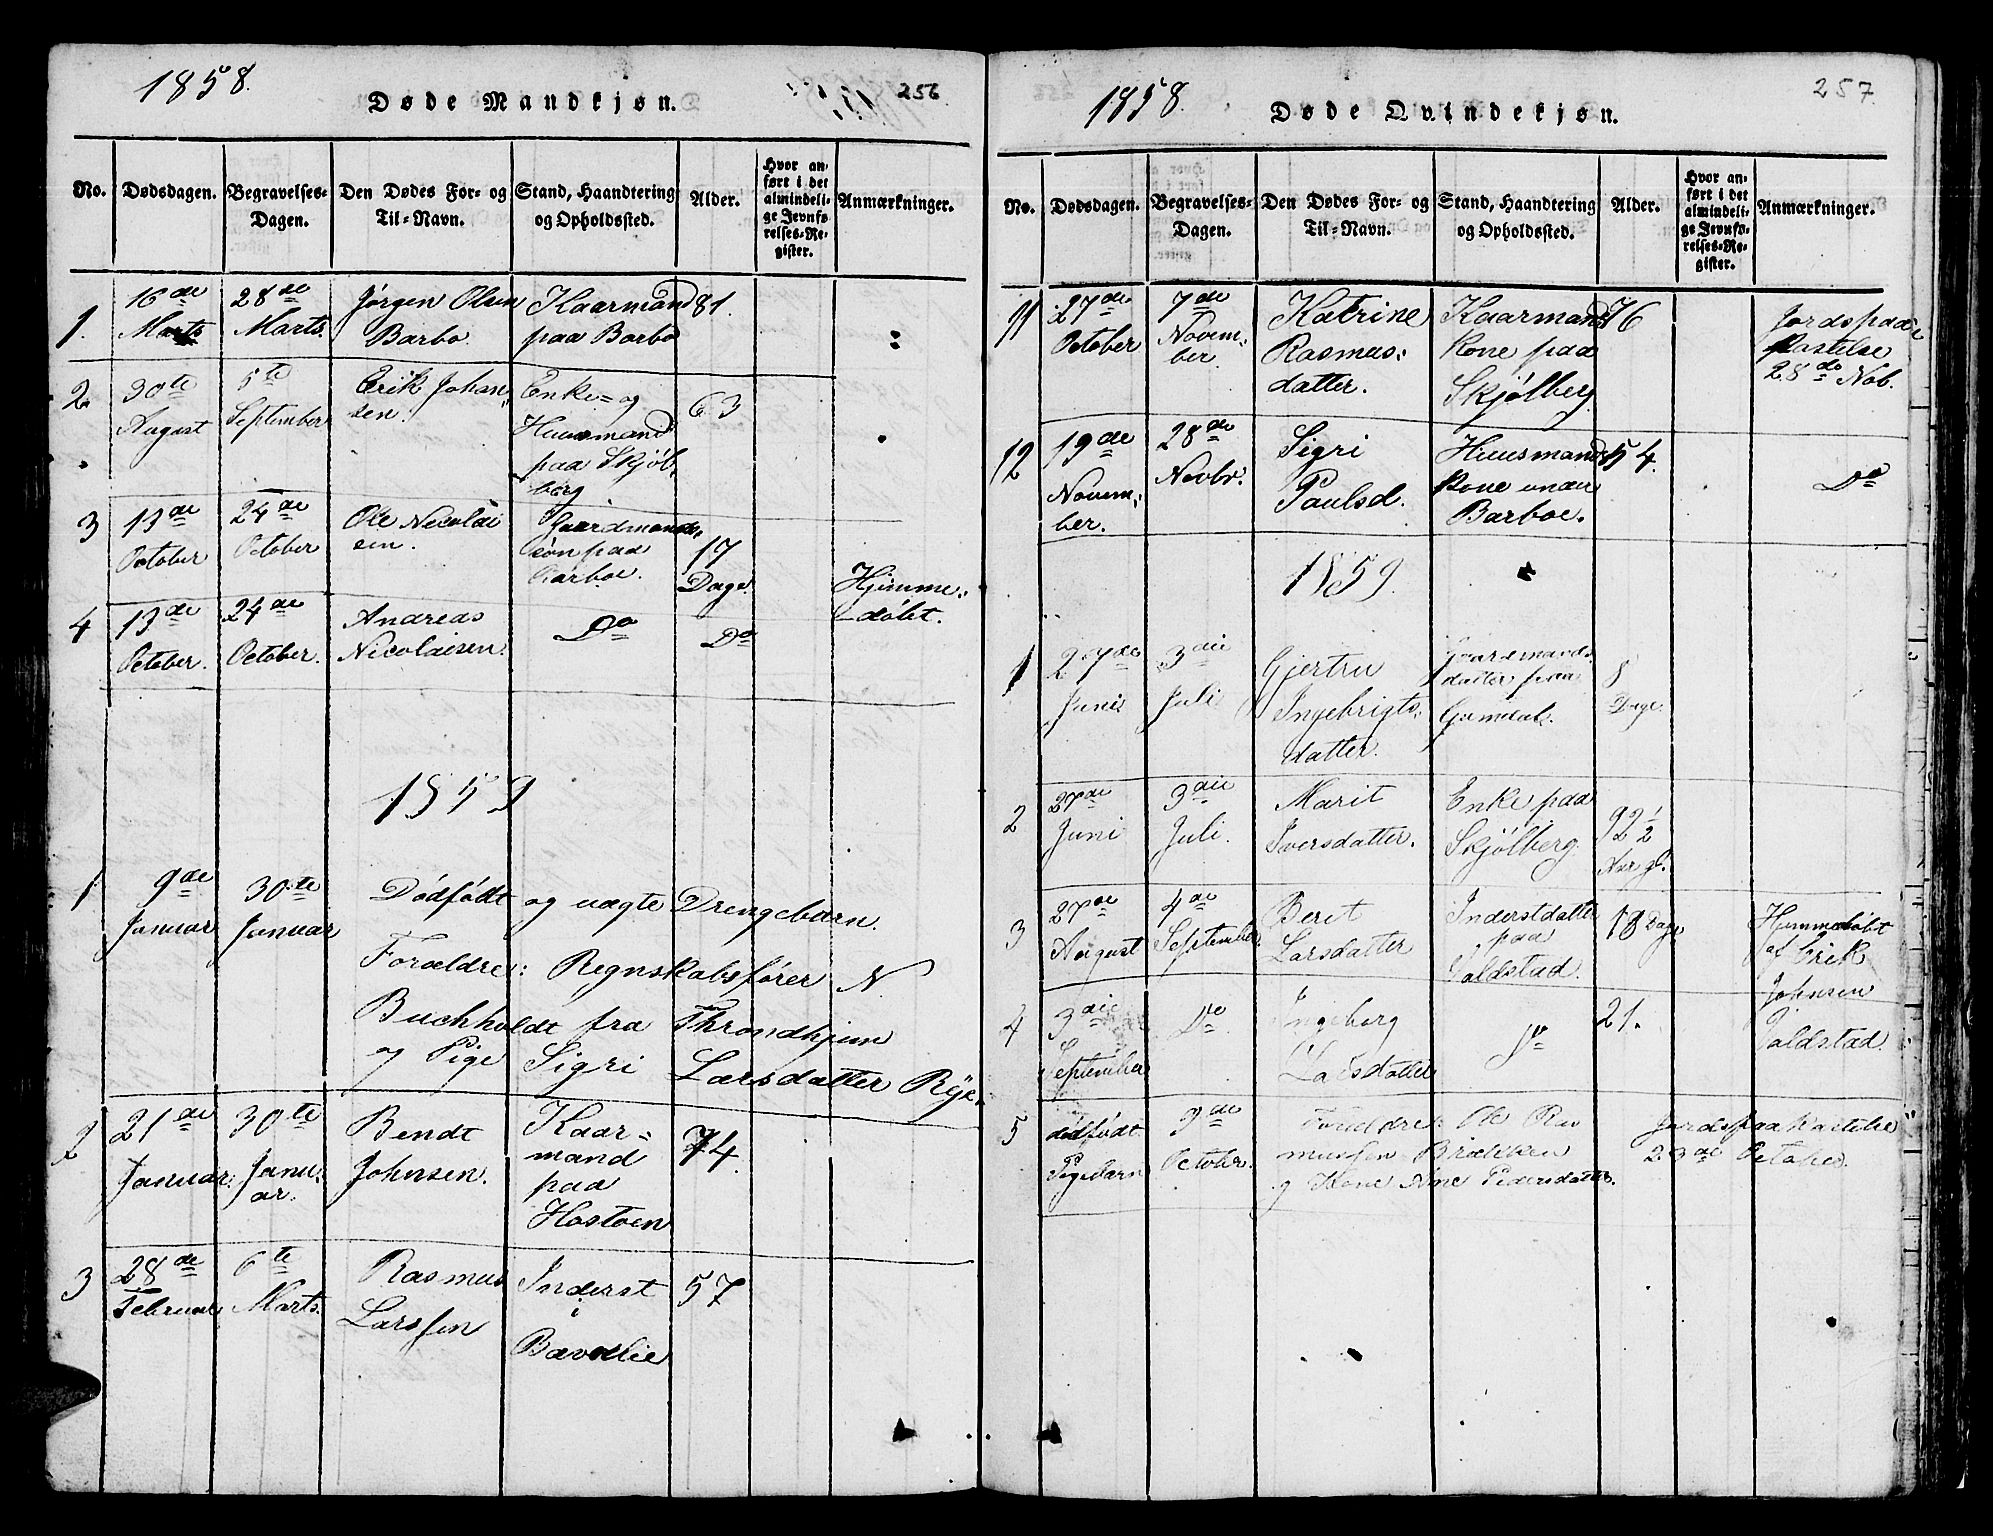 1858.
Døde Mandkjøn.
256
No.
Dødsdagen.
Begravelses-
Dagen.
Den Dødes For- og
Til-Navn.
Stand, Haandtering
og Opholdssted.
Alder.
Hvor an-
ført i det
almindeli-
ge Jevnfø-
relses-Re-
gister.
Anmærkninger.
1.
16de
Marts
28de
Marts
Jørgen Olsen
Barbo.
Kaarmand
paa Barbo
81.
2.
30te
August
5te
September
Erik Johan-
sen.
Enke- og
Huusmand
paa Skjøl-
berg
63
3
13de
October
24de
October
Ole Nicolai
sen.
Gaardmands-
søn paa
Barboe.
17
Dage.
Hjemme-
døbt.
4
13de
October.
24de
October.
Andreas
Nicolaisen.
Do
Do
1859
1
9de
Januar
30te
Januar
Dødfødt og uægte Drengebarn.
Forældre: Regnskabsfører N
Buchholdt fra Throndhjem
og Pige Sigri Larsdatter Rye.
2
21de
Januar.
30te
Janu-
ar.
Bendt
Johnsen.
Kaar-
mand
paa
Hostoen
74.
3
28de
Februar
6te
Marts.
Rasmus
Larssen
Inderst
i
Bævrelie
57
1858.
Døde Qvindekjøn.
257.
No.
Dødsdagen.
Begravelses-
Dagen.
Den Dødes For- og
Til-Navn.
Stand, Haandtering
og Opholdssted.
Alder.
Hvor an-
ført i det
almindeli-
ge Jevnfø-
relses-Re-
gister.
Anmærkninger.
11
27de
October
7de
Novem-
ber.
Katrine
Rasmus-
datter.
Kaarmands
Kone paa
Skjølberg
76
Jordspaa
kastelse
28de Nob.
12
19de
Novem-
ber.
28de
Novbr.
Sigri
Paulsd.
Huusmands
Kone under
Barboe.
54.
Do
1859.
1
27de
Juni
3die
Juli
Gjertru
Ingebrigts-
datter.
Gaardmands-
datter paa
8
Dage.
2
27de
Juni
3die
Juli.
Marit
Iversdatter.
Enke paa
Skjølberg.
92 1/2
Aar gl.
3
27de
August
4de
September
Beret
Larsdatter
Inderstdatter
paa
Foldstad.
18 Dage
Hjemmedøbt
af Erik
Johnsen
Foldstad.
4
3die
September
Do
Ingeborg
Larsdatter
Do
21.
5
dødfødt
Pigebarn
9de
October.
Forældre: Ole Ras
mussen Brækken
og Kone Ane Pedersdatter.
Jordspaakastelse
23de October.